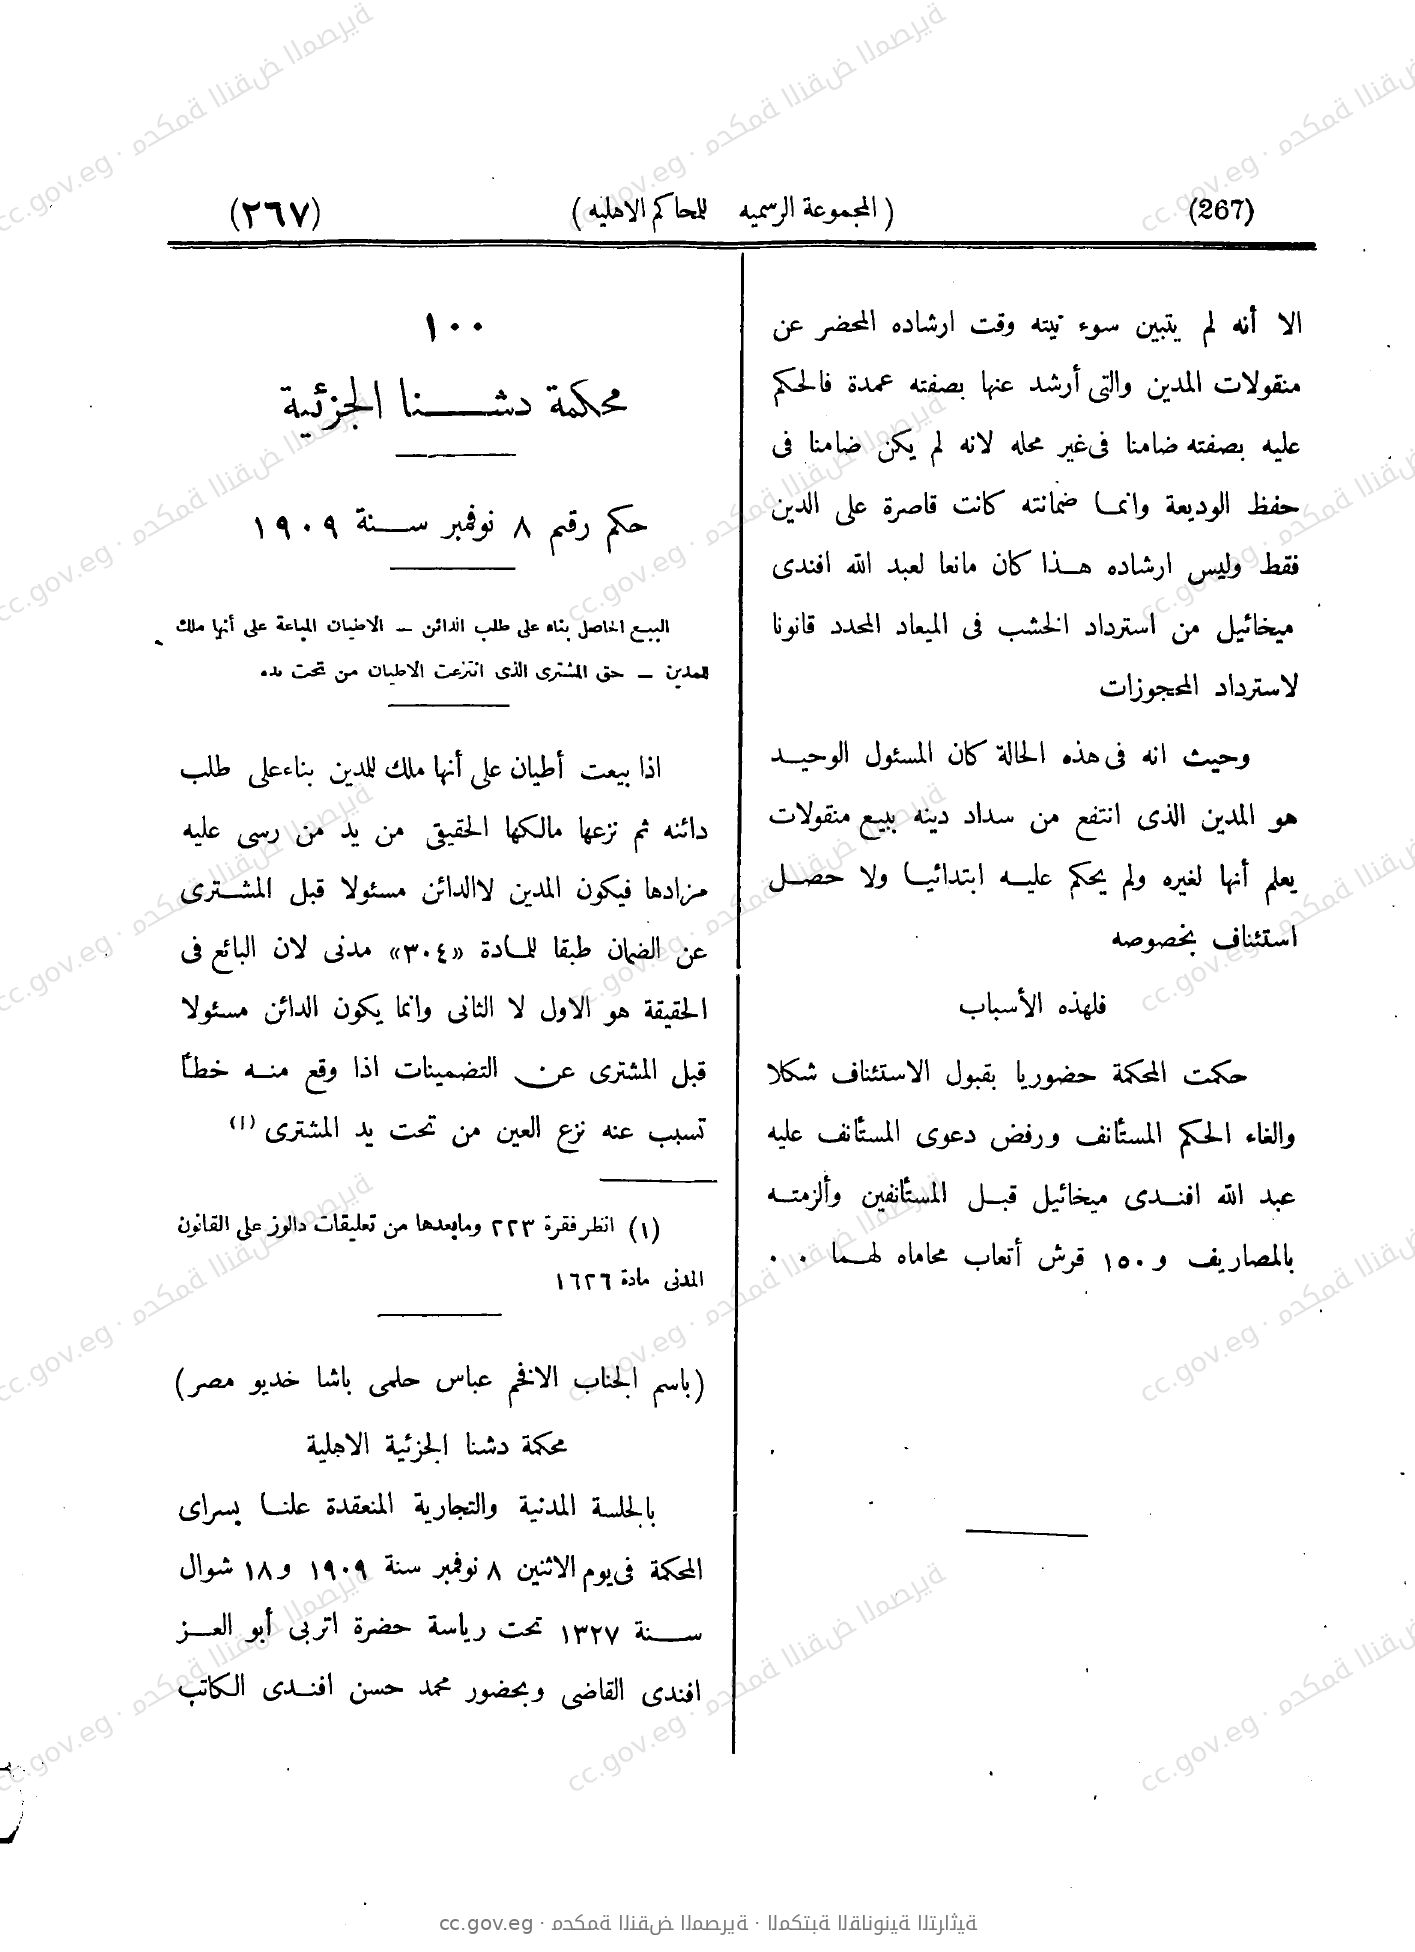 (267)
( المجموعة الرسميه للمحاكم الاهليه )
(٢٦٧)
الا أنه لم يتبين سوء نيته وقت ارشاده المحضر عن
منقولات المدين والتى أرشد عنها بصفته عمدة فالحكم
عليه بصفته ضامنا فى غير محله لانه لم يكن ضامنا فى
حفظ الوديعة وانما ضمانته كانت قاصرة على الدين
فقط وليس ارشاده هذا كان مانعا لعبد الله افندى
ميخائيل من استرداد الخشب فى الميعاد المحدد قانونا
لاسترداد المحجوزات
وحيث انه فى هذه الحالة كان المسئول الوحيد
هو المدين الذى انتفع من سداد دينه ببيع منقولات
يعلم أنها لغيره ولم يحكم عليه ابتدائيا ولا حصل
استئناف بخصوصه
فلهذه الأسباب
حكمت المحكمة حضوريا بقبول الاستئناف شكلا
والغاء الحكم المستأنف ورفض دعوى المستأنف عليه
عبد الله افندى ميخائيل قبل المستأنفين وألزمته
بالمصاريف و١٥٠ قرش أتعاب محاماه لهما . .
١٠٠
محكمة دشنا الجزئية
حكم رقيم ٨ نوفمبر سنة ١٩٠٩
البيع الحاصل بناه على طلب الدائن – الاطيان المباعة على أنها ملك
للمدين – حق المشترى الذى انتزعت الاطيان من تحت يده
اذا بيعت أطيان على أنها ملك للمدين بناء على طلب
دائنه ثم نزعها مالكها الحقيقى من يد من رسى عليه
مزادها فيكون المدين لا الدائن مسئولا قبل المشترى
عن الضمان طبقا للمادة «٣٠٤» مدنى لان البائع فى
الحقيقة هو الاول لا الثانى وانما يكون الدائن مسئولا
قبل المشترى عن التضمينات اذا وقع منه خطأ
تسبب عنه نزع العين من تحت يد المشترى (١)
(١) انظر فقرة ٢٢٣ ومابعدها من تعليقات دالوز على القانون
المدنى مادة ١٦٢٦
(باسم الجناب الافخم عباس حلمى باشا خديو مصر)
محكمة دشنا الجزئية الاهلية
بالجلسة المدنية والتجارية المنعقدة علنا بسراى
المحكمة فى يوم الاثنين ٨ نوفمبر سنة ١٩٠٩ و١٨ شوال
سنة ١٣٢٧ تحت رياسة حضرة اتربى أبو العز
افندى القاضى وبحضور محمد حسن افندى الكاتب
cc.gov.eg · محكمة النقض المصرية · المكتبة القانونية التراثية